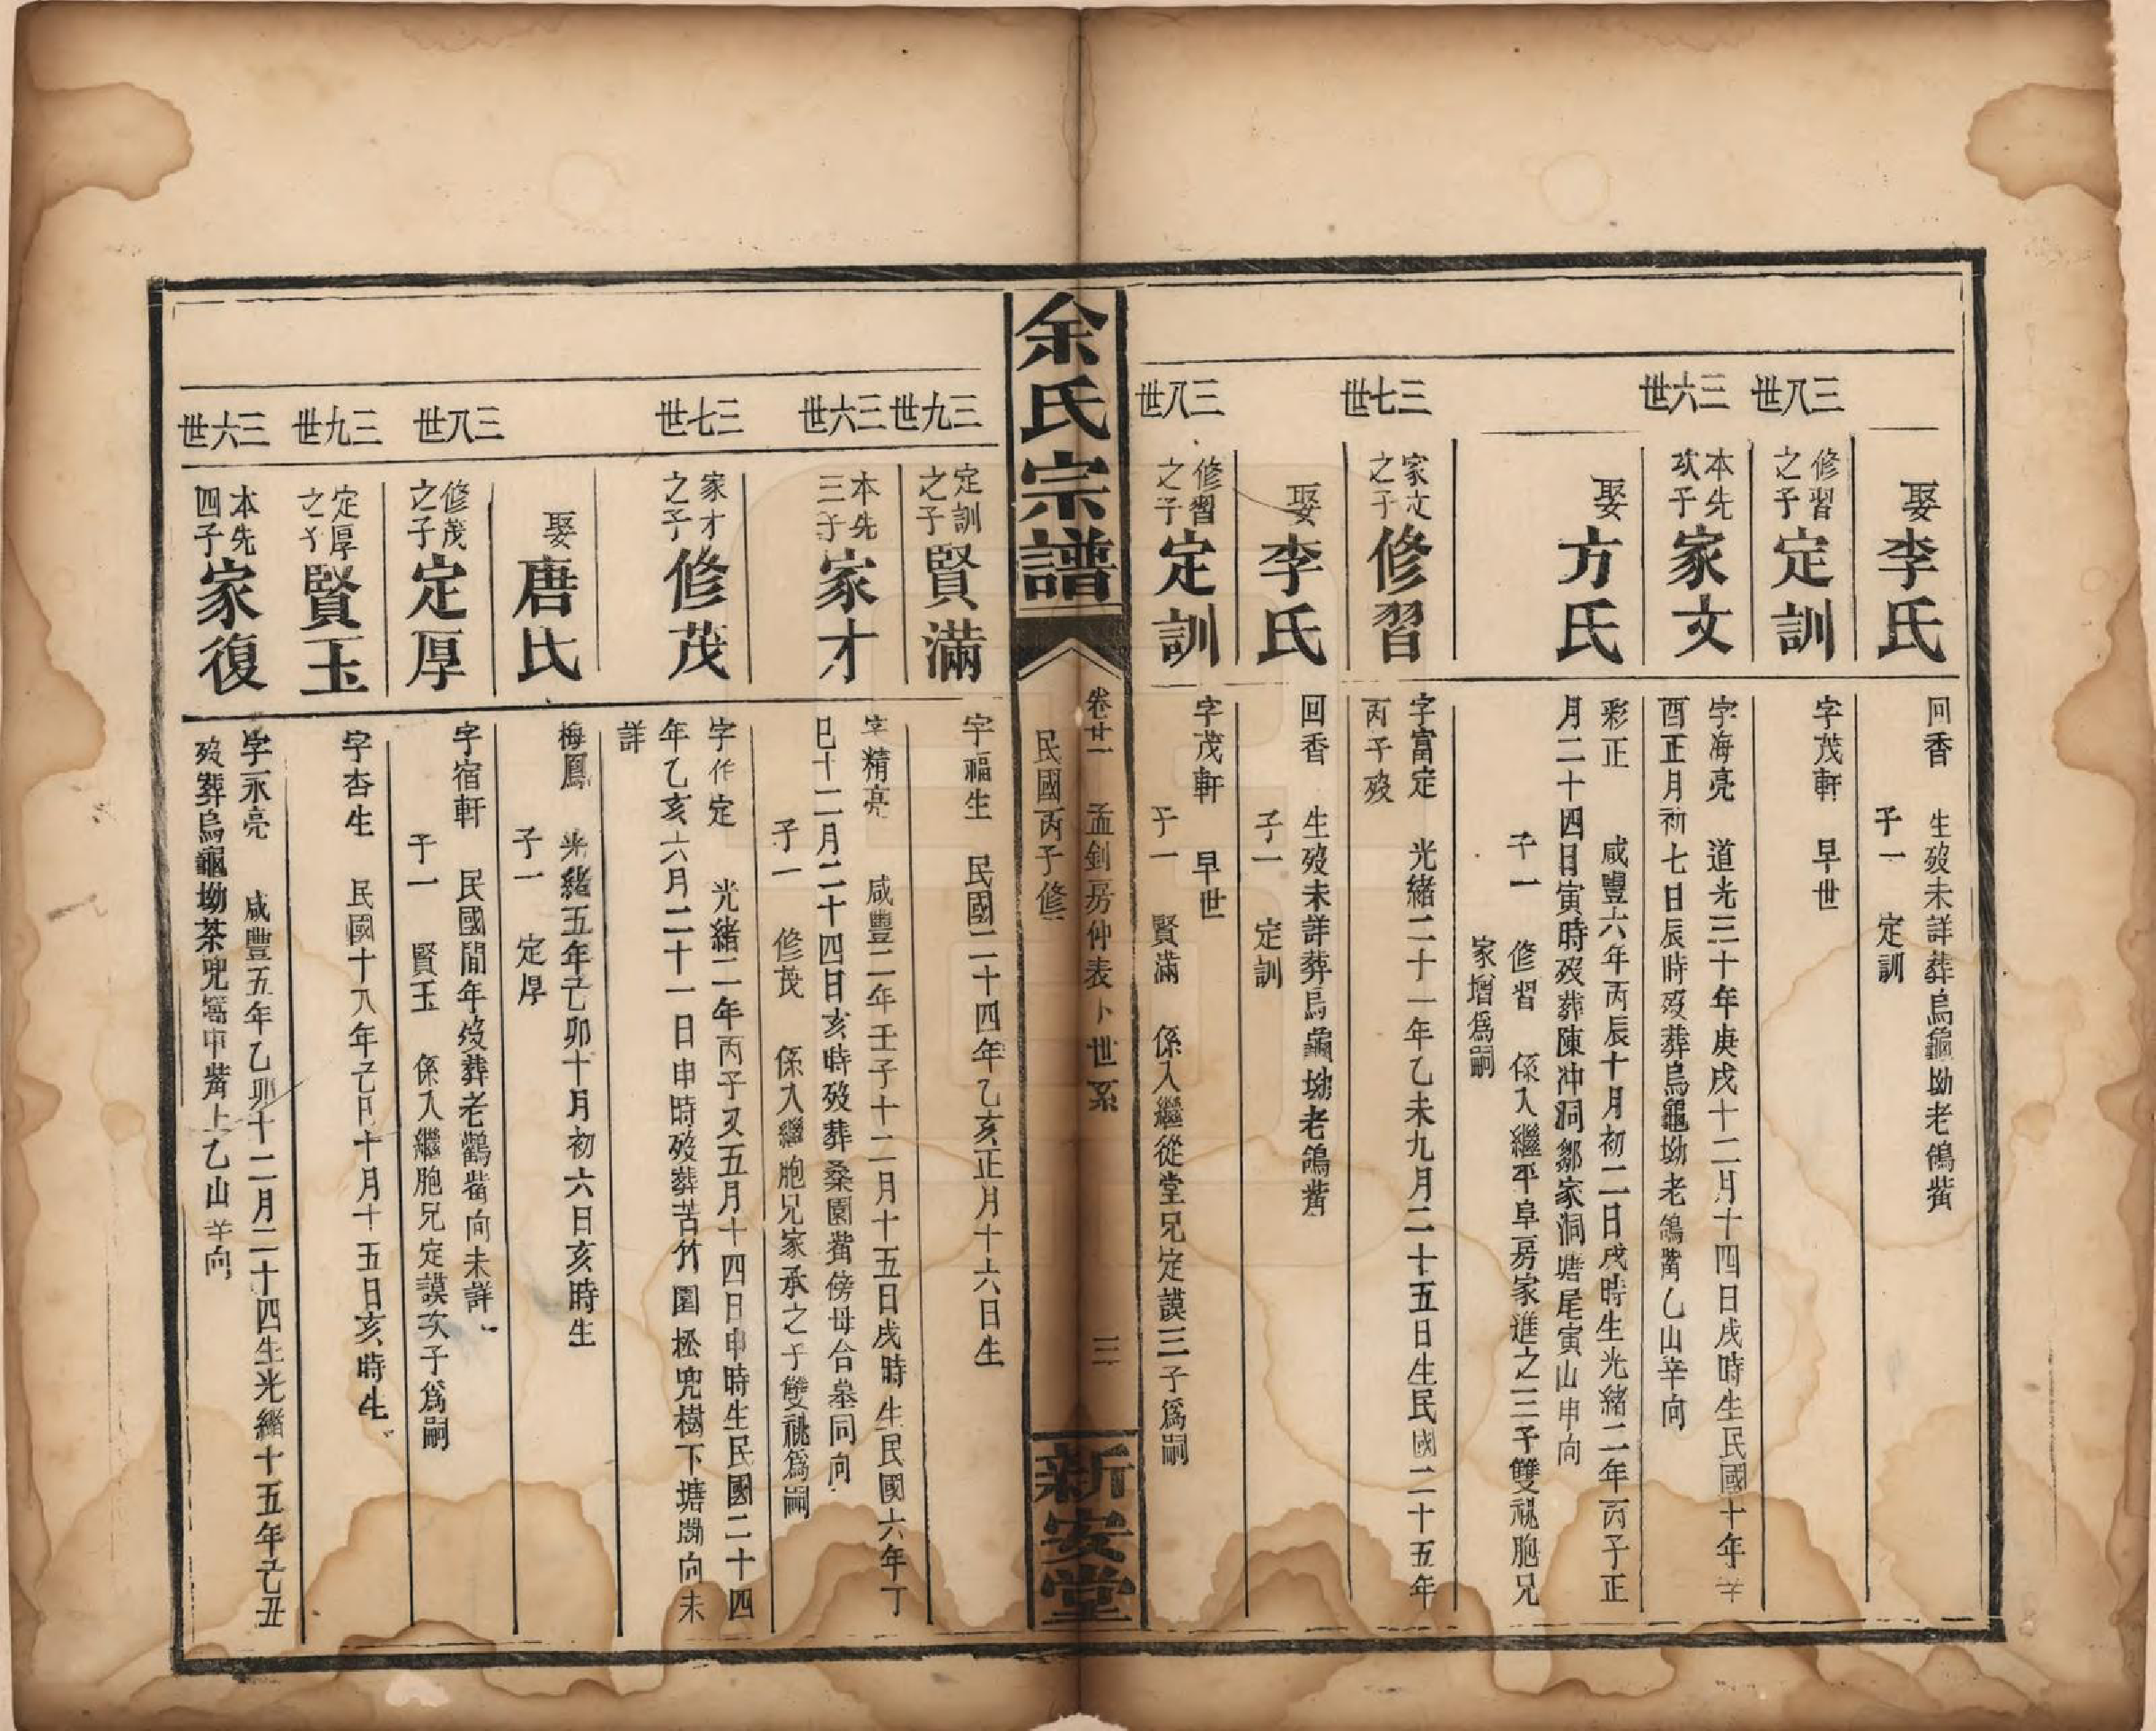 娶李氏
回香 生歿未詳葬烏龜坳老鴿嘴
子一 定訓
三八世
修習之子
定訓
字茂軒 早世
三六世
本先次子
家文
字海亮 道光三十年庚戌十二月十四日戌時生民國十年辛
酉正月初七日辰時歿葬烏龜坳老鴿嘴乙山辛向
娶方氏
彩正 咸豐六年丙辰十月初二日戌時生光緒二年丙子正
月二十四日寅時歿葬陳冲洞鄒家洞塘尾寅山申向
子一 修習 係入繼平阜房家進之三子雙祧胞兄
家增爲嗣
三七世
家文之子
修習
字富定 光緒二十一年乙未九月二十五日生民國二十五年
丙子歿
娶李氏
回香 生歿未詳葬烏龜坳老鴿嘴
子一 定訓
三八世
修習之子
定訓
字茂軒 早世
子一 賢滿 係入繼從堂兄定謨三子爲嗣
余氏宗譜
卷廿一 孟釗房仲表卜世系 三
民國丙子修
新安堂
三九世
定訓之子
賢滿
字福生 民國二十四年乙亥正月十六日生
三六世
本先三子
家才
字精亮 咸豐二年壬子十二月十五日戌時生民國六年丁
巳十二月二十四日亥時歿葬桑園嘴傍母合墓同向
子一 修茂 係入繼胞兄家承之子雙祧爲嗣
三七世
家才之子
修茂
字作定 光緒二年丙子又五月十四日申時生民國二十四
年乙亥六月二十一日申時歿葬苦竹園松兜樹下塘㘭向未
詳
娶唐氏
梅鳳 光緒五年己卯十月初六日亥時生
子一 定厚
三八世
修茂之子
定厚
字宿軒 民國間年歿葬老鸛嘴向未詳
子一 賢玉 係入繼胞兄定謨次子爲嗣
三九世
定厚之子
賢玉
字杏生 民國十八年己巳十月十五日亥時生
三六世
本先四子
家復
字永亮 咸豐五年乙卯十二月二十四生光緒十五年己丑
歿葬烏龜坳茶兜窩中嘴上乙山辛向